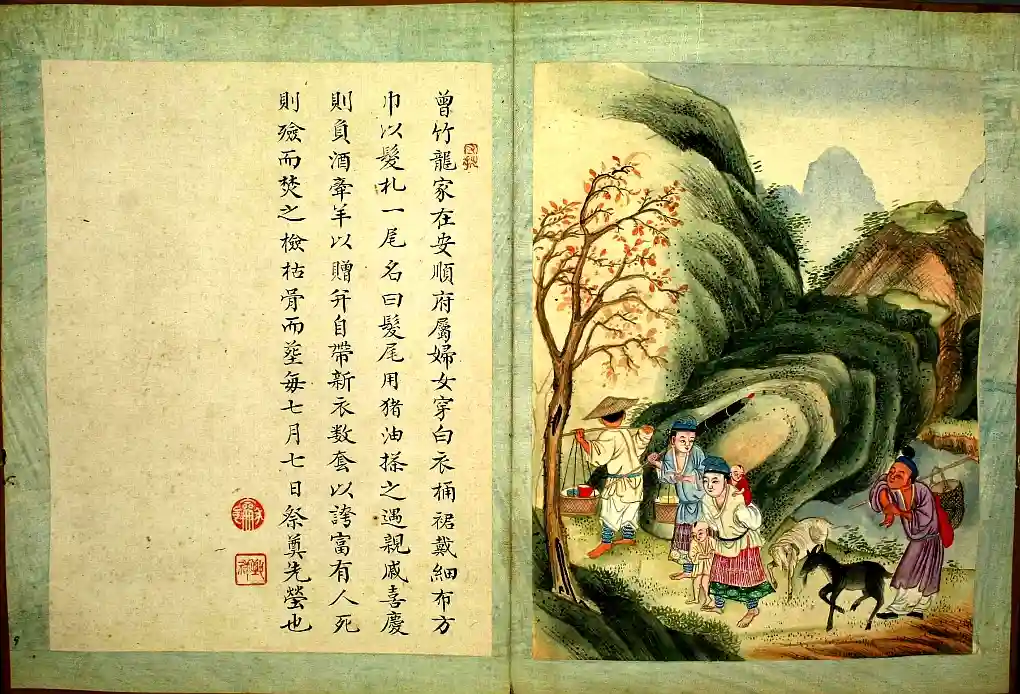 曾竹龍家在安順府屬婦女穿白衣桶裙戴細布方
巾以髮札一尾名曰髮尾用猪油搽之遇親戚喜慶
則負酒牽羊以贈并自帶新衣数套以誇富有人死
則殮而焚之檢枯骨而塟每七月七日祭奠先塋也
9